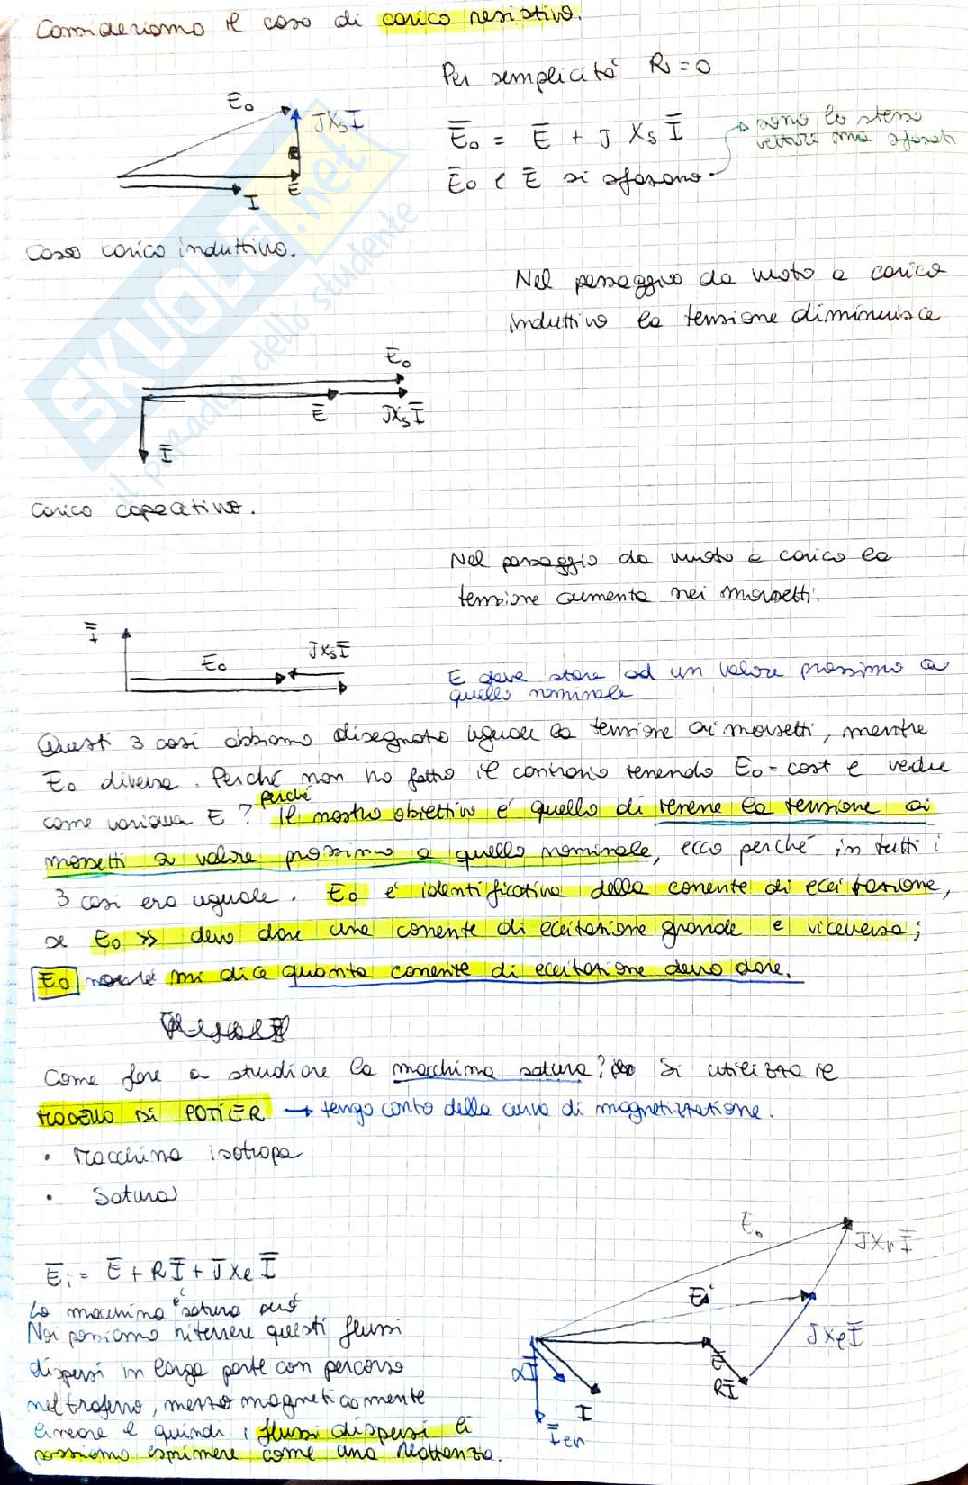 Consideriamo il caso di carico resistivo.
Per semplicità R = 0
E̅o
JXsI̅
E̅
I
E̅o = E̅ + J Xs I̅
sono lo stesso
vettore ma sfasati
E̅o e E̅ si sfasano
Caso carico induttivo.
Nel passaggio da vuoto a carico
induttivo la tensione diminuisce
E̅o
E̅
JXsI̅
I̅
carico capacitivo.
Nel passaggio da vuoto a carico la
tensione aumenta nei morsetti.
I̅
E̅o
JXsI̅
E deve stare ad un valore prossimo a
quello nominale
Questi 3 casi abbiamo disegnato uguale la tensione ai morsetti, mentre
Eo diversa. Perché non ho fatto il contrario tenendo Eo-cost e vedere
come variava E? perché Il nostro obiettivo è quello di tenere la tensione ai
morsetti a valore prossimo a quello nominale, ecco perché in tutti i
3 casi era uguale. Eo è identificativa della corrente di eccitazione,
se Eo >> devo dare una corrente di eccitazione grande e viceversa;
Eo mi dice quanta corrente di eccitazione devo dare.
Come fare a studiare la macchina satura? Si utilizza il
MODELLO DI POTIER → tengo conto della curva di magnetizzazione.
• Macchina isotropa
• Satura
E̅o
JXrI̅
E̅i = E̅ + RI̅ + J̅XeI̅
Ei
La macchina è satura però
Noi possiamo ritenere questi flussi
dispersi in larga parte con percorso
nel traferro, mezzo magneticamente
lineare e quindi i flussi dispersi li
possiamo esprimere come una reattanza.
JXeI̅
E̅
RI̅
αI̅
I
I̅ecc